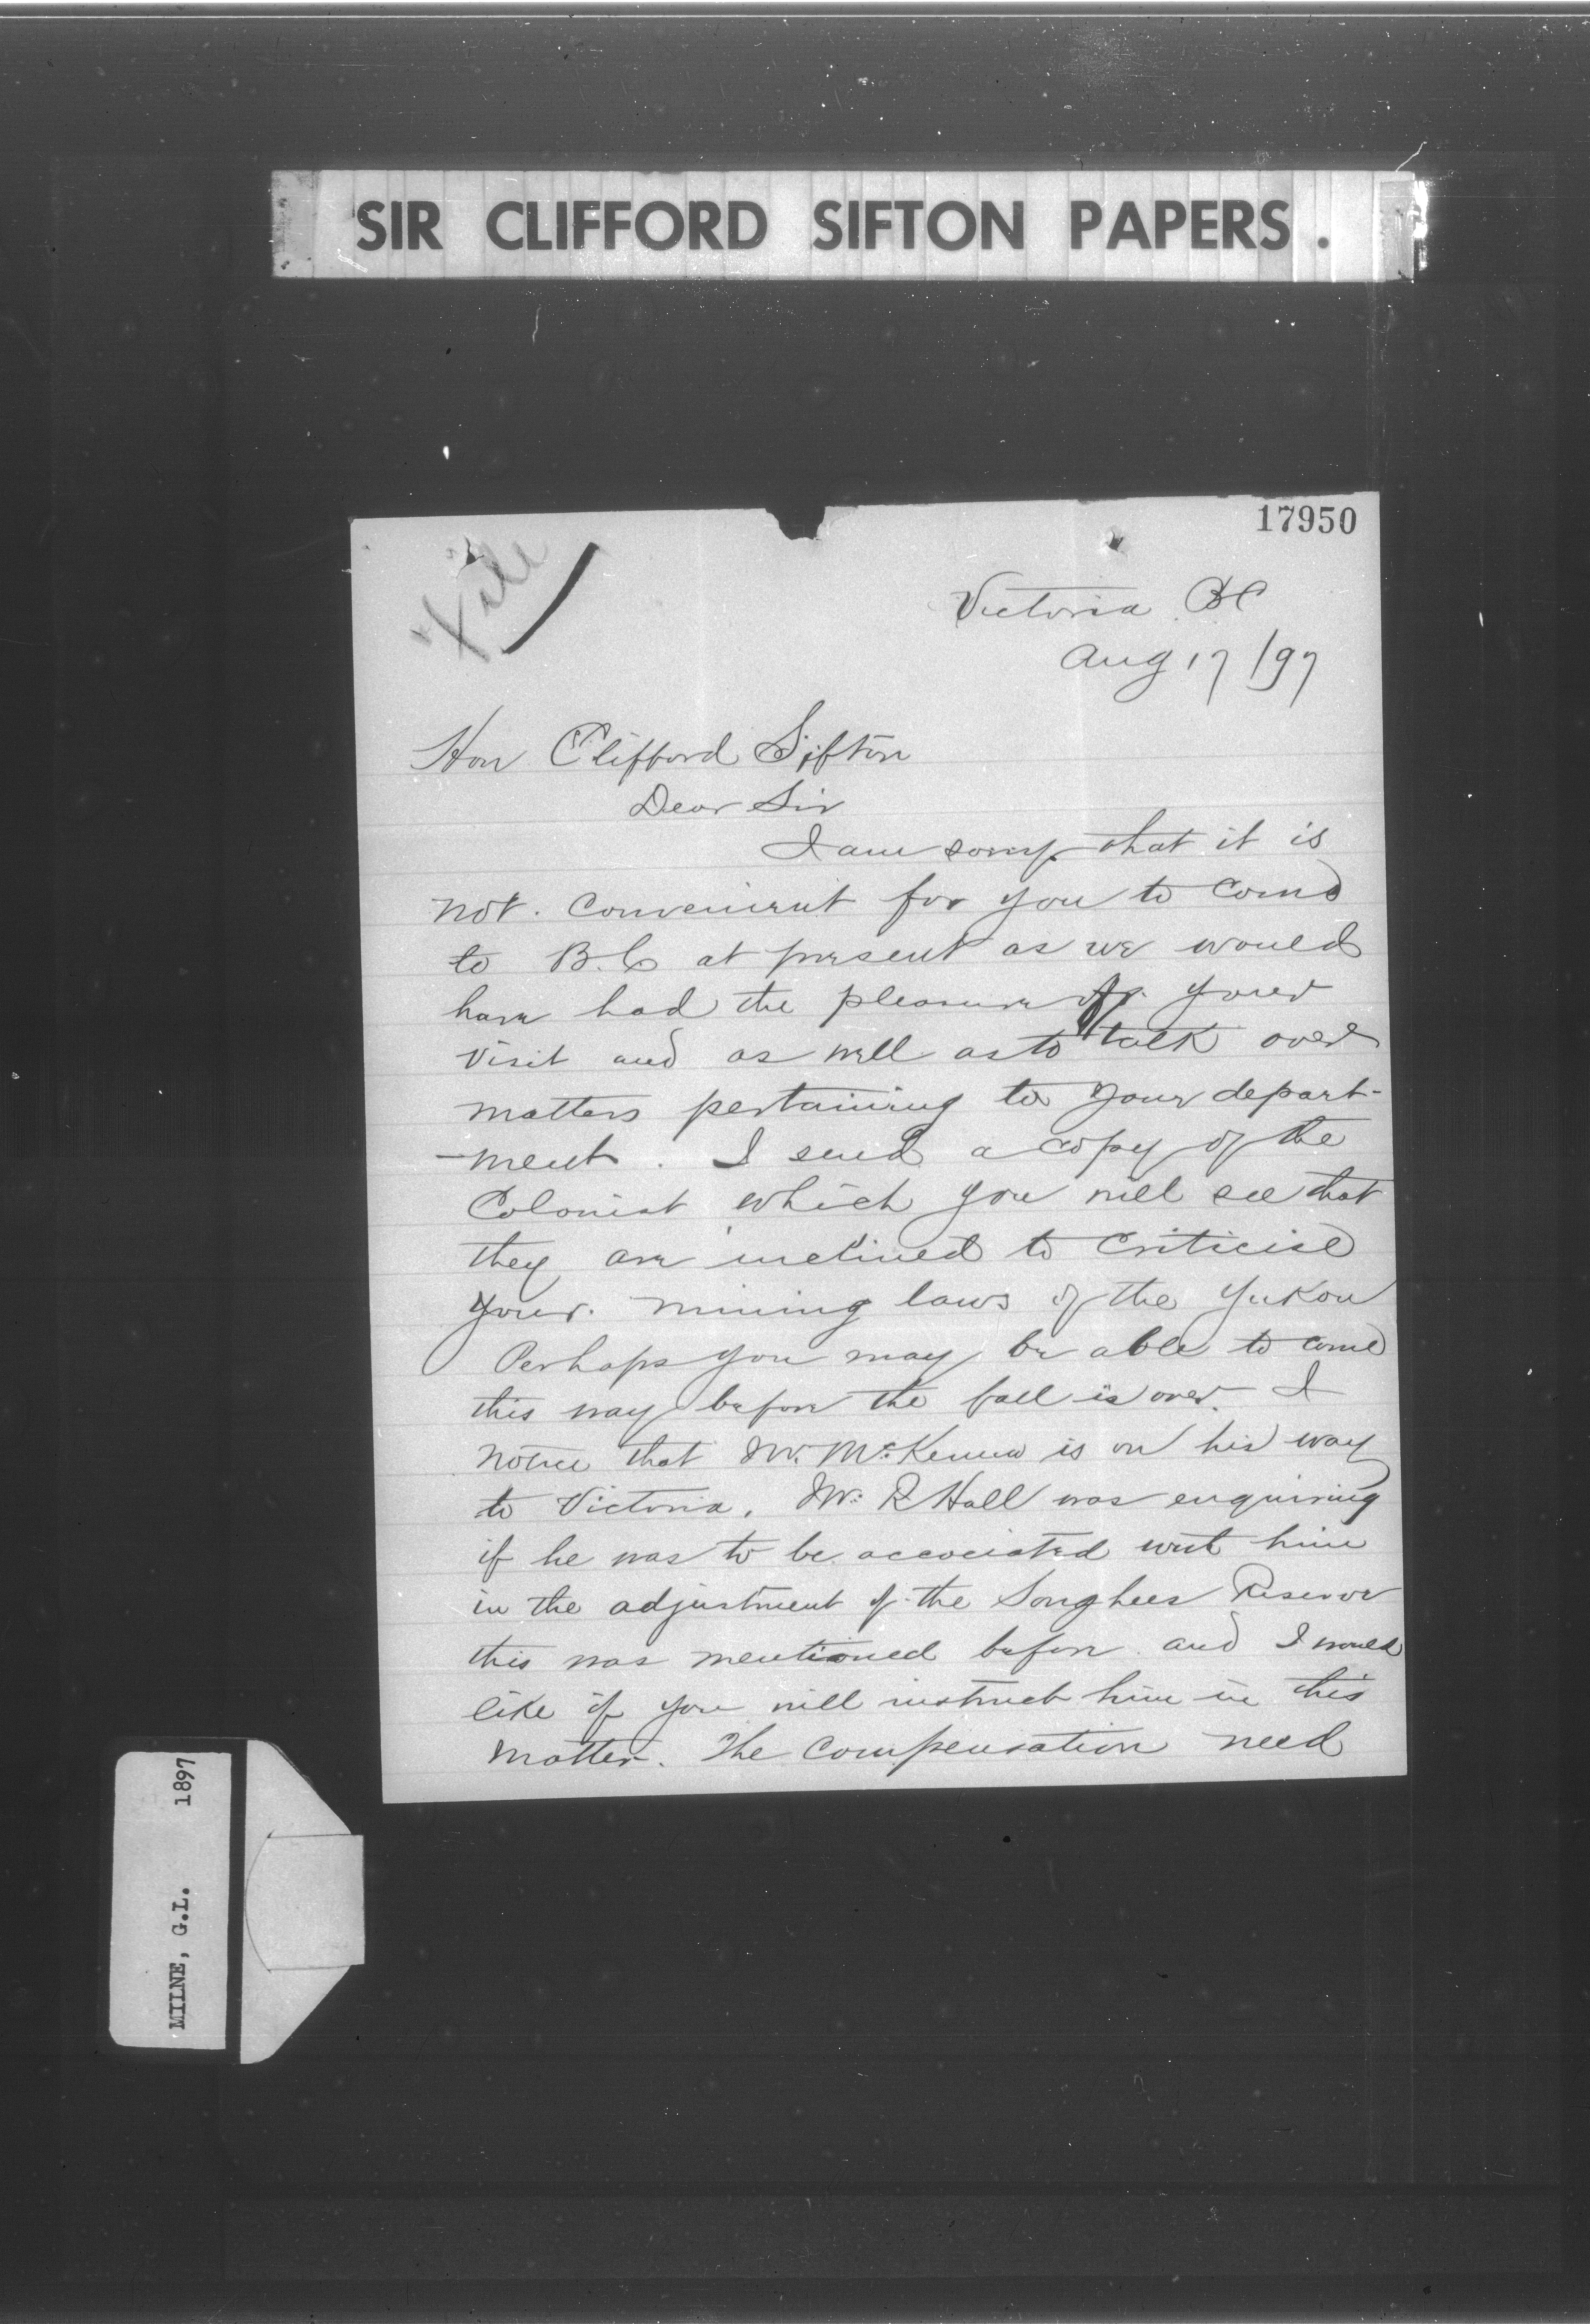 SIR CLIFFORD SIFTON PAPERS.
17950
File
Victoria BC
Aug 17/97
Hon Clifford Sifton
Dear Sir
I am sorry that it is
not. convenient for you to come
to B.C at present as we would
have had the pleasure of your
visit and as well as to talk over
matters pertaining to your depart-
-ment. I send a copy of the
Colonist which you will see that
they are inclined to criticise
your. mining laws of the Yukon
Perhaps you may be able to come
this way before the fall is over. I
notice that Mr. McKenna is on his way
to Victoria. Mr. R Hall was enquiring
if he was to be accociated wit him
in the adjustment of the Songhees Reserve
this was mentioned before and I would
like if you will instruct him in this
matter. The compensation need
MILNE, G.L. 1897